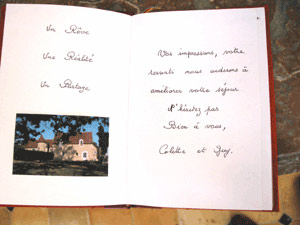 Un Rêve
Une Réalité
Un Partage
Vos impressions, votre
ressenti nous aiderons à
améliorer votre séjour
N'hésitez pas
Bien à vous,
Colette et Guy.